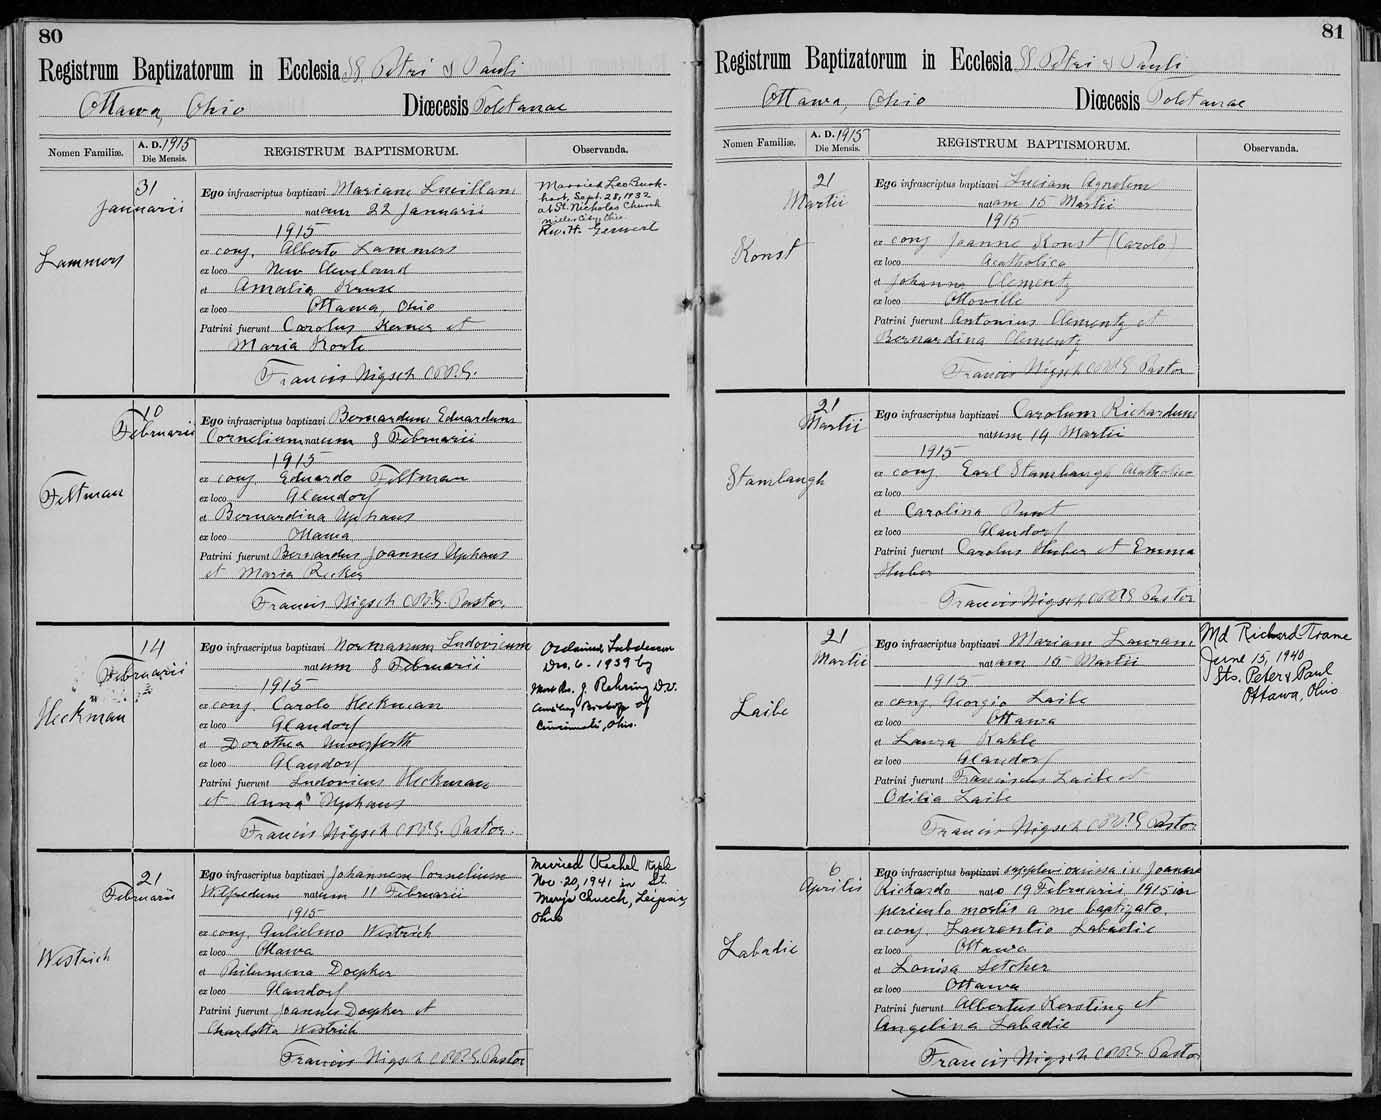 80
Registrum Baptizatorum in Ecclesia SS. Petri & Pauli
Ottawa, Ohio Diœcesis Toletanae
Nomen Familiæ. A. D. 1915 Die Mensis. REGISTRUM BAPTISMORUM. Observanda.
Lammers
31 Januarii
Ego infrascriptus baptizavi Mariam Lucillam
natam 22 Januarii
1915
ex conj. Alberto Lammers
ex loco New Cleveland
et Amalia Kruse
ex loco Ottawa, Ohio
Patrini fuerunt Carolus Kerner et
Maria Korte
Francis Nigsch C.PP.S.
Married Leo Burk-
hart, Sept. 28, 1932
at St. Nicholas Church
Miller City, Ohio
Rev. H.
Feltman
10 Februarii
Ego infrascriptus baptizavi Bernardum Eduardum
Cornelium natum 8 Februarii
1915
ex conj. Eduardo Feltman
ex loco Glandorf
et Bernardina Uphaus
ex loco Ottawa
Patrini fuerunt Bernardus Joannes Uphaus
et Maria Recker
Francis Nigsch C.PP.S. Pastor.
Heckman
14 Februarii
Ego infrascriptus baptizavi Normanum Ludovicum
natum 8 Februarii
1915
ex conj. Carolo Heckman
ex loco Glandorf
et Dorothea Unverferth
ex loco Glandorf
Patrini fuerunt Ludovicus Heckman
et Anna Uphaus
Francis Nigsch C.PP.S. Pastor.
Ordained Subdeacon
Dec. 6 - 1939 by
Most Rev. J. Rehring D.D.
Auxiliary Bishop of
Cincinnati, Ohio.
Westrich
21 Februarii
Ego infrascriptus baptizavi Johannem Cornelium
Wilfredum natum 11 Februarii
1915
ex conj. Gulielmo Westrich
ex loco Ottawa
et Philumena Doepker
ex loco Glandorf
Patrini fuerunt Joannes Doepker et
Charlotta Westrich
Francis Nigsch C.PP.S. Pastor
Married Rachel
Nov. 20, 1941 in St.
Mary's Church, Leipsic,
Ohio
81
Registrum Baptizatorum in Ecclesia SS Petri & Pauli
Ottawa, Ohio Diœcesis Toletanae
Nomen Familiæ. A. D. 1915 Die Mensis. REGISTRUM BAPTISMORUM. Observanda.
Konst
21 Martii
Ego infrascriptus baptizavi Luciam Agnetem
natam 15 Martii
1915
ex conj Joanne Konst (Carolo)
ex loco Acatholico
et Johanna Clementz
ex loco Ottoville
Patrini fuerunt Antonius Clementz et
Bernardina Clementz
Francis Nigsch C.PP.S Pastor
Stambaugh
21 Martii
Ego infrascriptus baptizavi Carolum Richardum
natum 14 Martii
1915
ex conj. Earl Stambaugh Acatholico
ex loco
et Carolina Punt
ex loco Glandorf
Patrini fuerunt Carolus Huber et Emma
Huber
Francis Nigsch C.PP.S Pastor
Laibe
21 Martii
Ego infrascriptus baptizavi Mariam Lauram
natam 15 Martii
1915
ex conj. Georgio Laibe
ex loco Ottawa
et Laura Kahle
ex loco Glandorf
Patrini fuerunt Franciscus Laibe et
Odilia Laibe
Francis Nigsch C.PP.S Pastor
Md Richard Trame
June 15, 1940
Sts. Peter & Paul
Ottawa, Ohio
Labadie
6 Aprilis
Ego infrascriptus baptizavi supplevi omissa in Joanne
Richardo nato 19 Februarii 1915 in
periculo mortis a me baptizato.
ex conj. Laurentio Labadie
ex loco Ottawa
et Louisa Letcher
ex loco Ottawa
Patrini fuerunt Albertus Kersting et
Angelina Labadie
Francis Nigsch C.PP.S Pastor